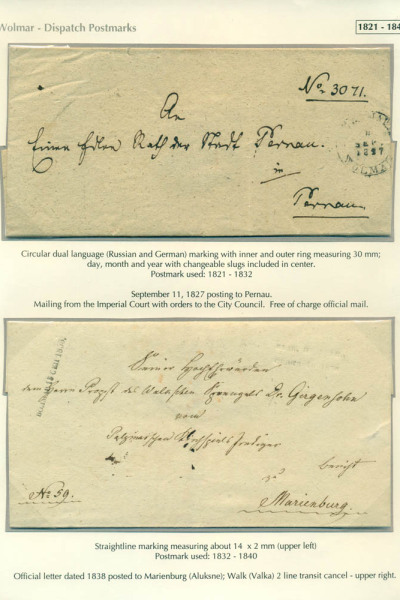 Wolmar - Dispatch Postmarks
1821 - 184
No. 3071.
An
Einen Edlen Rath der Stadt Pernau.
in
Pernau.
Circular dual language (Russian and German) marking with inner and outer ring measuring 30 mm;
day, month and year with changeable slugs included in center.
Postmark used: 1821 - 1832
September 11, 1827 posting to Pernau.
Mailing from the Imperial Court with orders to the City Council. Free of charge official mail.
Seiner Hochehrwürden
dem Herrn Propst des Walkschen Sprengels Dr. Girgensohn
vom
Prediger
Bericht
zu
No. 59.
Marienburg.
Straightline marking measuring about 14 x 2 mm (upper left)
Postmark used: 1832 - 1840
Official letter dated 1838 posted to Marienburg (Aluksne); Walk (Valka) 2 line transit cancel - upper right.